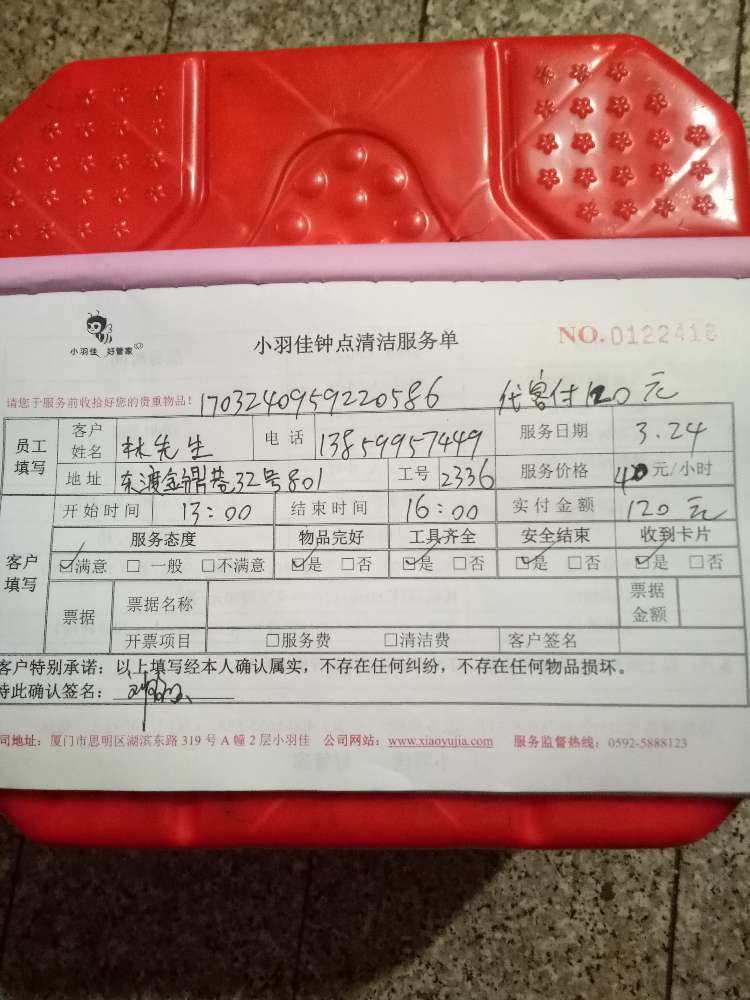 小羽佳 好管家
小羽佳钟点清洁服务单
NO.0122418
请您于服务前收拾好您的贵重物品！
1703240959220586 代客付120元
员工填写 客户姓名 林先生 电话 13859957449 服务日期 3.24
地址 东渡金鼎巷32号801 工号 2336 服务价格 40元/小时
客户填写 开始时间 13:00 结束时间 16:00 实付金额 120元
服务态度 物品完好 工具齐全 安全结束 收到卡片
☑满意 □一般 □不满意 ☑是 □否 ☑是 □否 ☑是 □否 ☑是 □否
票据 票据名称 票据金额
开票项目 □服务费 □清洁费 客户签名
客户特别承诺：以上填写经本人确认属实，不存在任何纠纷，不存在任何物品损坏。
特此确认签名：
司地址：厦门市思明区湖滨东路319号A幢2层小羽佳 公司网站：www.xiaoyujia.com 服务监督热线：0592-5888123